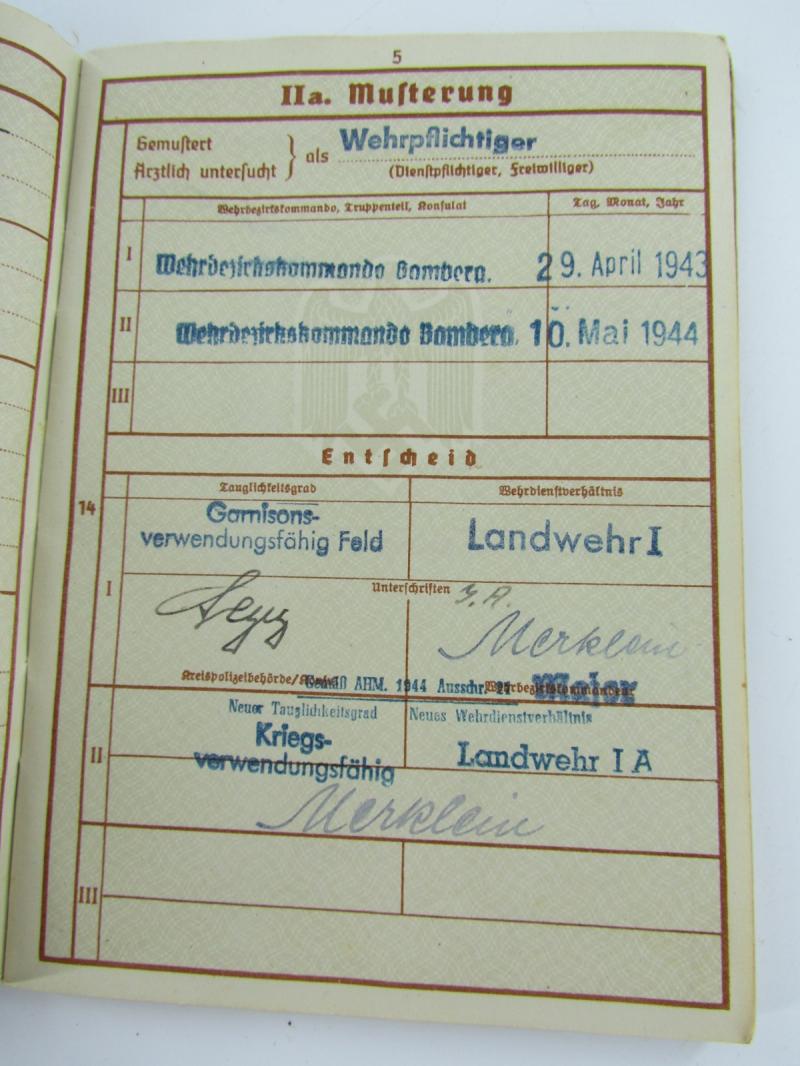 5
IIa. Muſterung
Gemuſtert
Ärztlich unterſucht } als Wehrpflichtiger
(Dienſtpflichtiger, Freiwilliger)
Wehrbezirkskommando, Truppenteil, Konſulat
Tag, Monat, Jahr
I Wehrbezirkskommando Bamberg. 29. April 1943
II Wehrbezirkskommando Bamberg. 10. Mai 1944
III
Entſcheid
14
Tauglichkeitsgrad
Wehrdienſtverhältnis
Garnisons-
verwendungsfähig Feld
Landwehr I
I
Unterſchriften
J. A.
Merklein
Kreispolizeibehörde/
Wehrbezirkskommandeur
Major
Gemäß AHM. 1944 Ausschn.
Neuer Tauglichkeitsgrad
Neues Wehrdienstverhältnis
II
Kriegs-
verwendungsfähig
Landwehr I A
Merklein
III